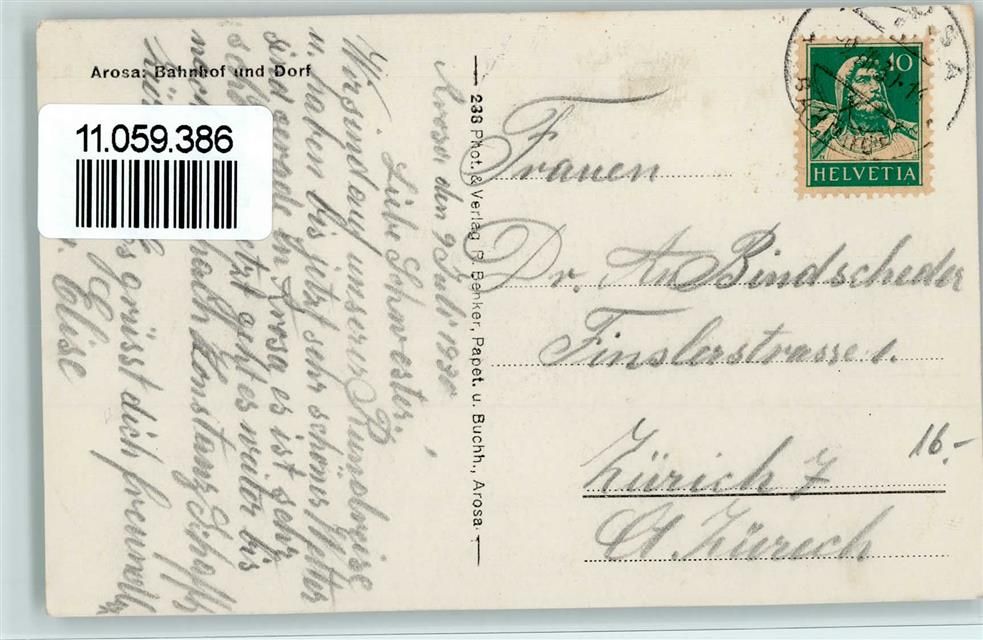 Arosa: Bahnhof und Dorf
11.059.386
Arosa den 9 Juli 1930
Liebe Schwester.
Wir sind auf unserer Rundreise
u. haben bis jetz sehr schönes Wetter
sind gerade in Arosa es ist sehr
geht es weiter bis
nach Konstanz
grüsst dich
Elise
238 Phot. & Verlag R. Benker, Papet. u. Buchh., Arosa
10
HELVETIA
Frauen
Dr. An Bindscheder
Finslerstrasse 1.
Zürich 7
Ct. Zürich
16.-